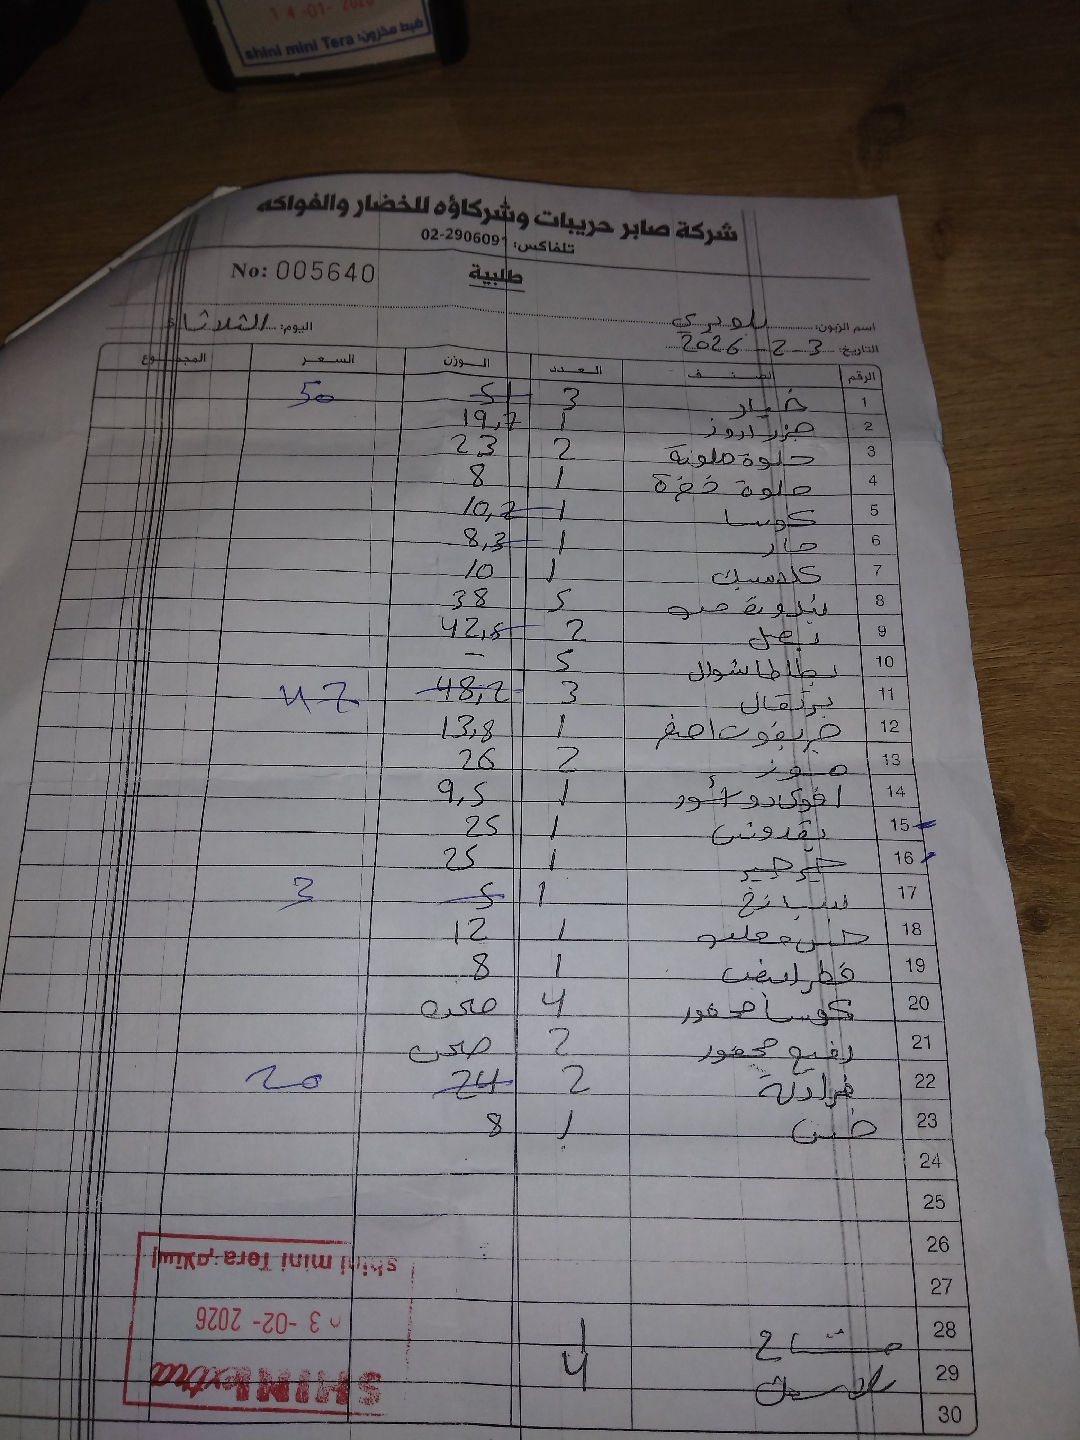 14-01-2026
ضبط مخزون: shini mini Tera
شركة صابر حريبات وشركاؤه للخضار والفواكه
تلفاكس: 02-2906091
طلبية
No: 005640
اسم الزبون:
اليوم: الثلاثاء
التاريخ: 3-2-2026
الرقم الصنف العدد الوزن السعر المجموع
1 خيار 3 51 50
2 جزر اروز 1 19,7
3 حلوة ملونة 2 23
4 حلوة خضرة 1 8
5 كوسا 1 10,2
6 حار 1 8,3
7 كلاسيك 1 10
8 بندورة 5 38
9 بصل 2 42,5
10 بطاطا شوال 5 -
11 برتقال 3 48,2 47
12 جريفوت احمر 1 13,8
13 موز 2 26
14 افوكادو 1 9,5
15 بقدونس 1 25
16 جرجير 1 25
17 سبانخ 1 5 3
18 خس 1 12
19 فطر ابيض 1 8
20 كوسا محفور 4 صحن
21 رفيع محفور 2 صحن
22 2 24 20
23 خس 1 8
24
25
26
27
28 1
29 4
30
استلام: shini mini Tera
03-02-2026
SHINI extra